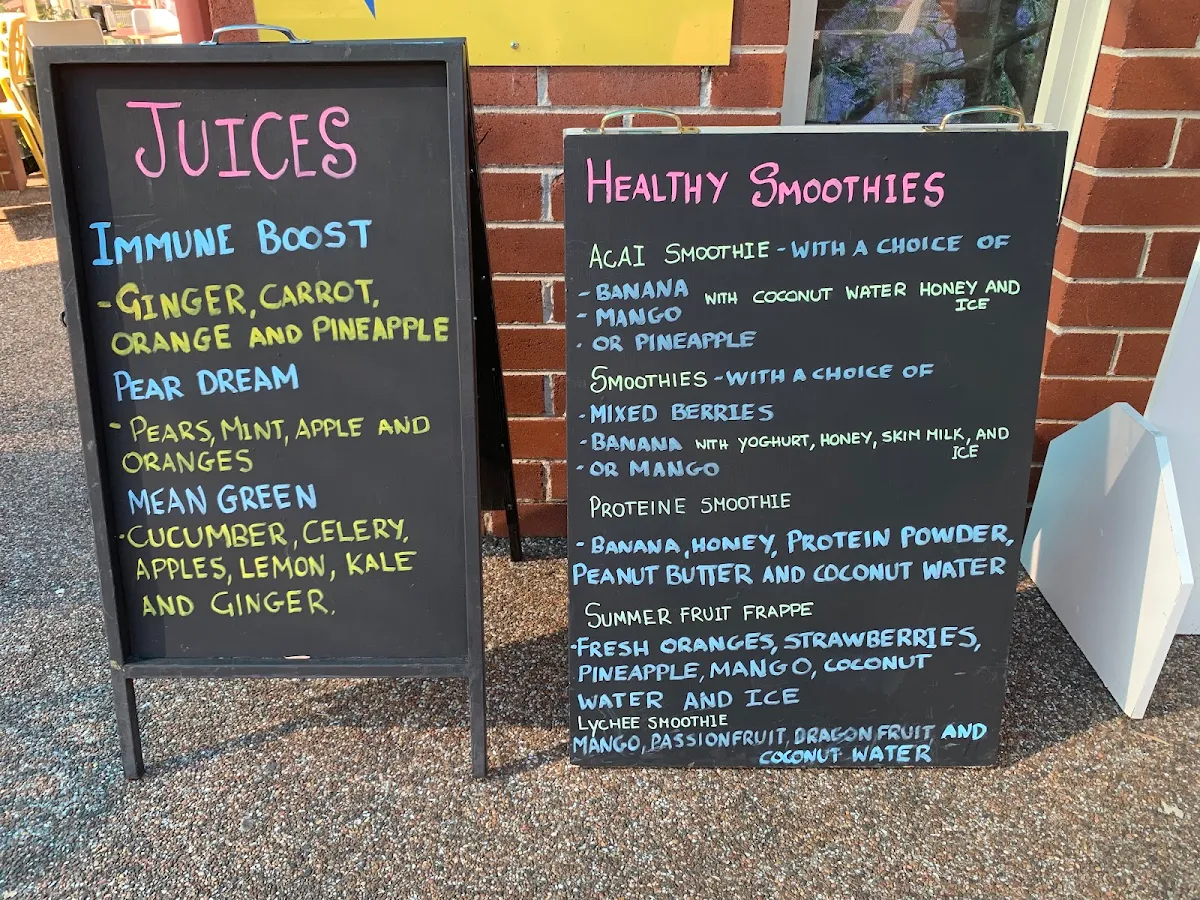 JUICES
IMMUNE BOOST
- GINGER, CARROT,
ORANGE AND PINEAPPLE
PEAR DREAM
- PEARS, MINT, APPLE AND
ORANGES
MEAN GREEN
- CUCUMBER, CELERY,
APPLES, LEMON, KALE
AND GINGER.
HEALTHY SMOOTHIES
ACAI SMOOTHIE - WITH A CHOICE OF
- BANANA WITH COCONUT WATER HONEY AND
ICE
- MANGO
- OR PINEAPPLE
SMOOTHIES - WITH A CHOICE OF
- MIXED BERRIES
- BANANA WITH YOGHURT, HONEY, SKIM MILK, AND
ICE
- OR MANGO
PROTEINE SMOOTHIE
- BANANA, HONEY, PROTEIN POWDER,
PEANUT BUTTER AND COCONUT WATER
SUMMER FRUIT FRAPPE
- FRESH ORANGES, STRAWBERRIES,
PINEAPPLE, MANGO, COCONUT
WATER AND ICE
LYCHEE SMOOTHIE
MANGO, PASSIONFRUIT, DRAGON FRUIT AND
COCONUT WATER